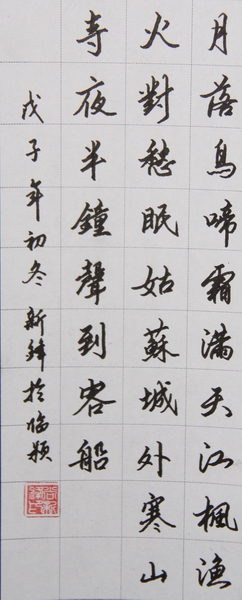 月落烏啼霜滿天江楓漁
火對愁眠姑蘇城外寒山
寺夜半鐘聲到客船
戊子年初冬新鋒於临颖